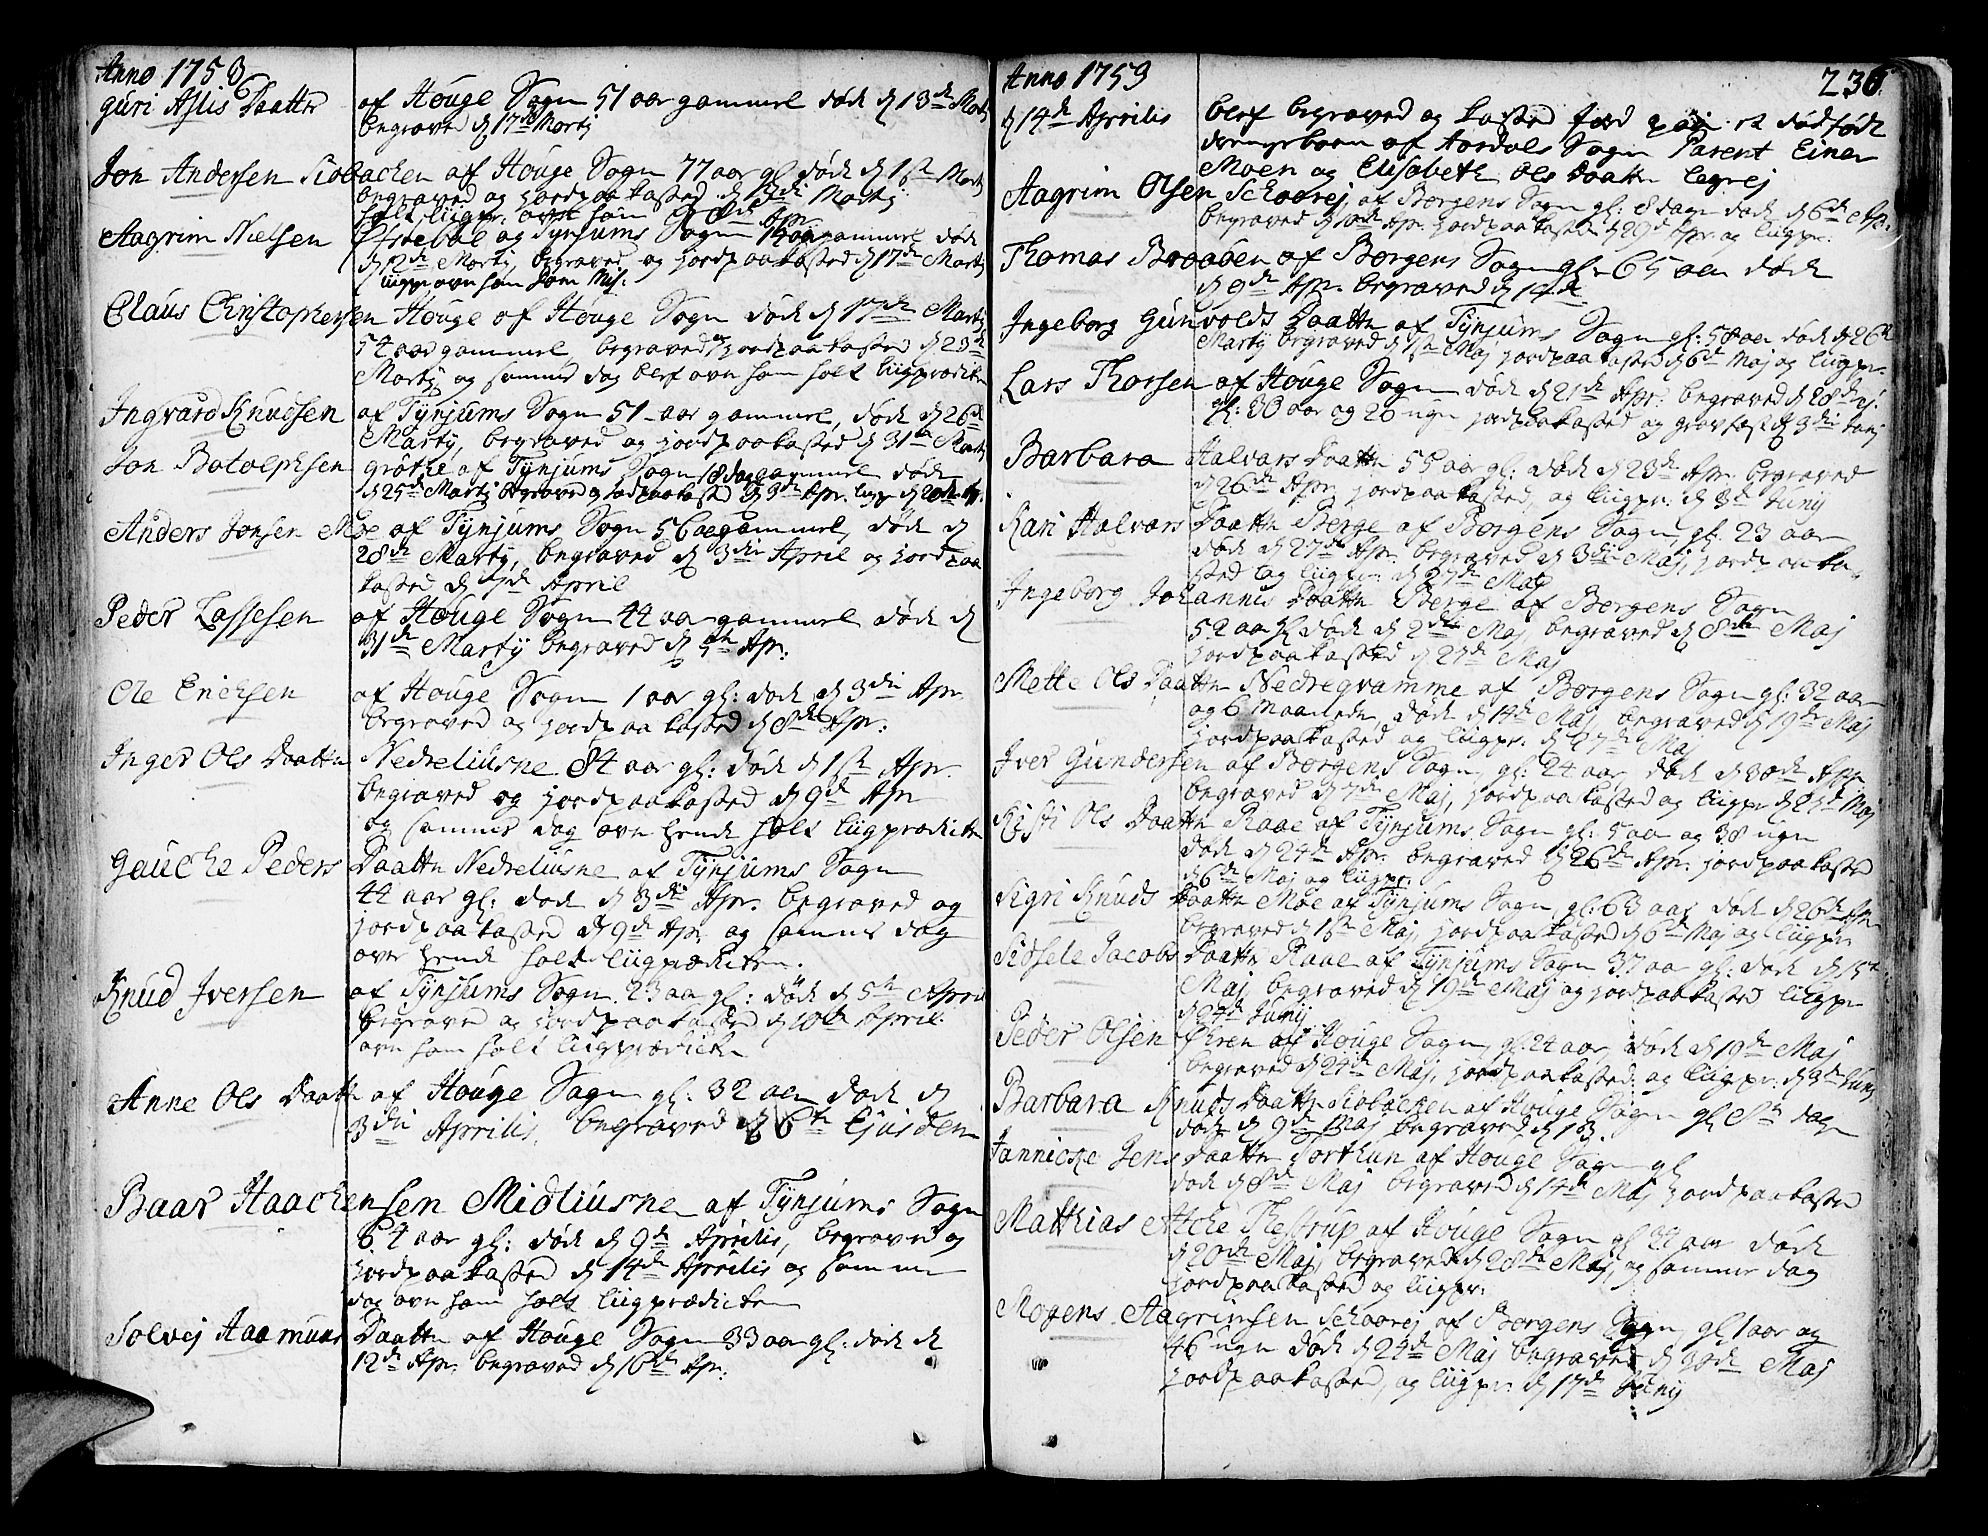 Anno 1753
Guri Aslis Daatter af Houge Sogn 51 aar gammel død d 13de Martj
begraved d 17de Martj
Jon Andersen Skobachen af Houge Sogn 77 aar gl død d 1ste Martj
begraved og Jordpaakasted d Martj
holt liigpr. over ham d Apr
Aagrim Nielsen Ofstebøe og Tynjums Sogn gammel døde
d 12de Martj, begraved og jordpaakasted d 17de Martj
liigpr ovr ham Dom Mis:
Claus Christophersen Houge af Houge Sogn død d 17de Martj
54 aar gammel, begraved og jordpaakasted d 23de
Martj og samme dag blef ovr ham holt liigprædicken
Ingvard Knudsen af Tynjums Sogn 51 aar gammel, døde d 26de
Martj, begraved og jordpaakasted d 31te Martj
Jon Botolphsen grøthe af Tynjums Sogn 8 dage gammel døde
d 25de Martj begraved og jordpaakasted d 3de Apr. liigpr d Apr.
Anders Jonsen Moe af Tynjums Sogn 56 aar gammel, døde d
28de Martj, begraved d 3die April og jordpaa
kasted d 7de April
Peder Lassesen af Houge Sogn 44 aar gammel døde d
31te Martj begraved d Apr:
Ole Erichsen af Houge Sogn 1 aar gl: døde d 3die Apr.
begraved og jordpaakasted d 8de Apr:
Inger Ols Daatter Nedreliusne 84 aar gl: døde d 1ste Apr.
begraved og jordpaakasted d 9de Apr
og samme dag ovr hende holt liigprædicken
Gauche Peders Daatter Nedreliusne af Tynjums Sogn
44 aar gl: døde d 3die Apr. begraved og
jordpaakasted d 9de Apr og samme dag
over hende holt liigprædicken.
Knud Iversen af Tynjums Sogn 23 aar gl: døde d 5te April
begraved og jordpaakasted d 10de April.
ovr ham holt liigprædicken
Anne Ols Daatter af Houge Sogn gl: 32 aar døde d
3die Aprilis, begraved d 6te Ejusdem
Baar Haachensen Midliusne af Tynjums Sogn
64 aar gl: døde d 9de Aprilis, begraved og
jordpaakasted d 14de Aprilis og samme
dag ovr ham holt liigprædicken
Solvej Aamunds Daatter af Houge Sogn 33 aar gl: døde d
12de Apr. begraved d 16de Apr:
Anno 1753 236
d 14de Aprilis blef begraved og kasted Jord paa et dødføde
drengebarn af Aardals Sogn Parent Einer
Moen og Elisabeth Ols Daatter Legrej
Aagrim Olsen Schaarej af Borgens Sogn gl: 8 dage døde d 6de Apr.
begraved d 10de Apr. jordpaakasted d 29de Apr. og liigpr:
Thomas Braaten af Borgens Sogn gl: 65 aar døde
d 9de Apr. begraved d 14de
Ingeborg Gunvolds Daatter af Tynjums Sogn gl: 58 aar døde d 26de
Martj begraved d 1ste Maj jordpaakasted d 6de Maj og liigpr.
Lars Thorsen af Houge Sogn døde d 21de Apr: begraved d 28de ej.
gl: 30 aar og 26 ugr jordpaakasted og gravfæst d 3die Junij
Barbara Halvars Daatter 55 aar gl: døde d 23de Apr. begraved
d 26de Apr. jordpaakasted, og liigpr. d 3de Junij
Kari Halvars Daatter Berge af Borgens Sogn, gl. 23 aar
døde d 27de Apr. begraved d 3die Maj, jordpaaka-
sted og liigpr: d 27de Maj
Ingeborg Johannis Daatter Berge af Borgens Sogn
52 aar gl døde d 2den Maj, begraved d 8de Maj
jordpaakasted d 27de Maj
Mette Ols Daatter Nedreqvamme af Borgens Sogn gl: 32 aar
og 6 Maaneder, døde d 14de Maj, begraved d 19de Maj
jordpaakasted og liigpr: d 27de Maj
Iver Gundersen af Borgens Sogn, gl: 24 aar, døde d 30de Apr
begraved d 7de Maj, jordpaakasted og liigpr d 27de Maj
Kisti Ols Daatter Raae af Tynjums Sogn gl: 5 aar og 38 ugr
døde d 24de Apr. begraved d 26de Apr. jordpaakasted
d 6de Maj og liigpr:
Sigri Knuds Daatter Moe af Tynjums Sogn, gl: 63 aar døde d 26de Apr
begraved d 1ste Maj, jordpaakasted d 6te Maj og liigpr
Sidsele Jacobs Daatter Raae af Tynjums Sogn 37 aar gl: døde d 15de
Maj, begraved d 19de Maj og jordpaakasted liigpr
d 24de Junij
Peder Olsen Øhren af Houge Sogn, gl. 24 aar, døde d 19de Maj
begraved d 24de Maj, jordpaakasted og liigpr: d 3de Junij
Barbara Knuds Daatter Skobachen af Houge Sogn gl 8te dage
døde d 9de Maj begraved d 13.
Jannicke Jens Daatter Torthun af Houge Sogn gl
døde d 8de Maj begraved d 14de Maj jordpaakasted
Mathias Atche Thestrup af Houge Sogn gl 34 aar døde
d 20de Maj, begraved d 28de Maj, og samme dag
jordpaakasted og liigpr:
Mogens Aagrimsen Schaarej af Borgens Sogn, gl 1 aar og
46 ugr døde d 24de Maj begraved d 30de Maj
jordpaakasted, og liigpr: d 17de Junij